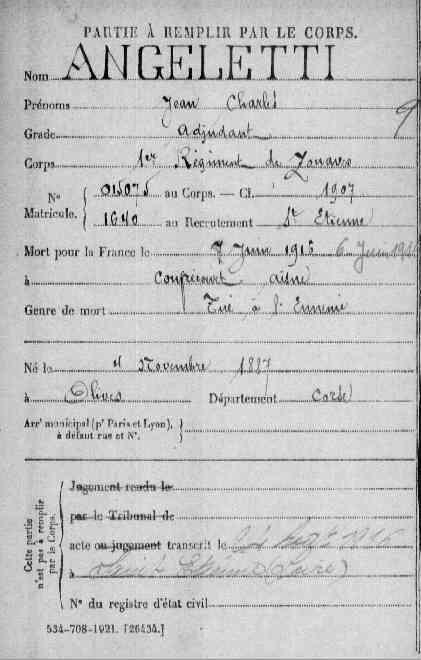 PARTIE À REMPLIR PAR LE CORPS.
Nom ANGELETTI
Prénoms Jean Charles
Grade Adjudant
Corps 1er Régiment de Zouaves
N° Matricule. { 015075 au Corps. — Cl. 1907
1640 au Recrutement St Etienne
Mort pour la France le 7 Juin 1915 6 Juin
à aisne
Genre de mort Tué à l'Ennemi
Né le 4 Novembre 1887
à Département Corse
Arrt municipal (pr Paris et Lyon), }
à défaut rue et N°.
Cette partie n'est pas à remplir par le Corps.
Jugement rendu le
par le Tribunal de
acte ou jugement transcrit le
à Saint Etienne (Loire)
N° du registre d'état civil
534-708-1921. [26434.]